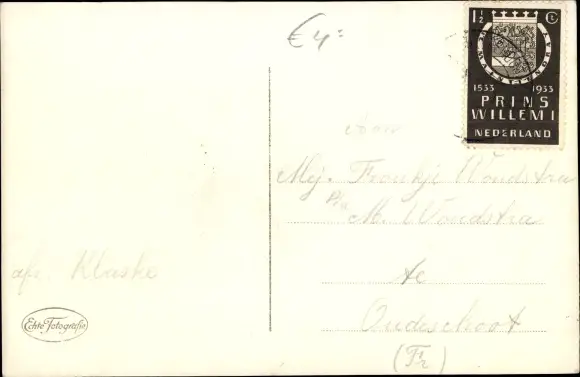 € 4:
1½ Ct
JE MAINTIENDRAY
1533 1933
PRINS
WILLEM I
NEDERLAND
aan
Mej. Froukje Woudstra
p/a M. Woudstra
te
Oudeschoot
(Fr)
afz. Klaske
Echte Fotografie